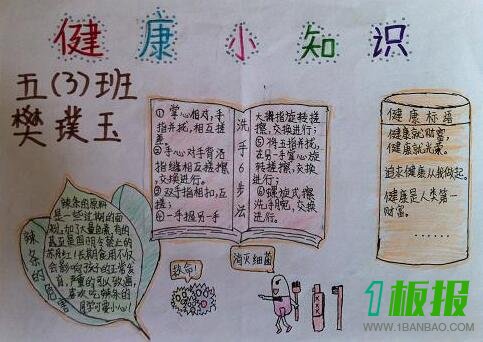 健康小知识
五(3)班
樊璞玉
洗手6步法
①掌心相对,手
指并拢,相互搓
②手心对手背沿
指缝相互搓擦,
交换进行;
③双手指相扣,互
搓;
④一手握另一手
大拇指旋转搓
擦,交换进行;
⑤将五指并拢,
在另一手掌心旋
转搓擦,交换
进行;
⑥螺旋式擦
洗手腕,交换
进行。
健康标语
健康就是财富,
健康就光荣。
追求健康从我做起。
健康是人类第一
财富。
……
辣条的危害
辣条的原料
是一些过期的面
粉,加了大量色素,有的
甚至是国明令禁止的
苏丹红!长期食用不仅
会影响孩子的正常发
育,严重的可以致癌,
喜欢吃辣条的
同学可要小心!
救命!
消灭细菌
1板报
WWW.1BANBAO.COM